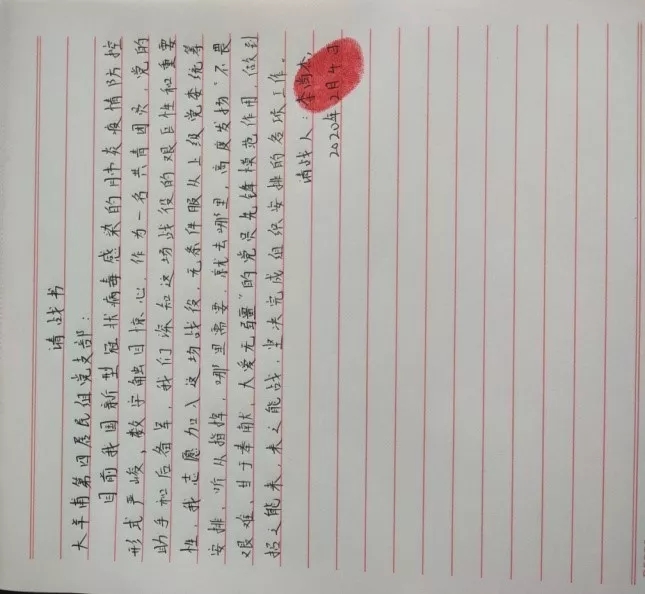 请战书
大羊甫第四居民组党支部：
目前我国新型冠状病毒感染的肺炎疫情防控
形式严峻，数字触目惊心，作为一名共青团员，党的
助手和后备军，我们深知这场战役的艰巨性和重要
性，我志愿加入这场战役，无条件服从上级党委统筹
安排，听从指挥，哪里需要，就去哪里，高度发扬“不畏
艰难，甘于奉献，大爱无疆”的党员先锋模范作用，做到
招之能来，来之能战，坚决完成组织安排的各项工作。
请战人：李尚
2020年2月4日